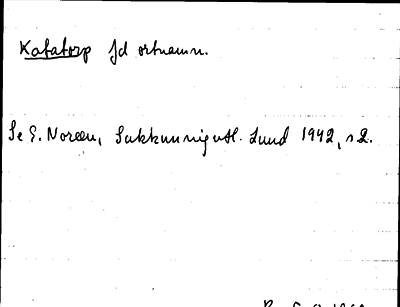 Kafatorp fd ortnamn.
Se E. Noreen, Sakkunnigutl. Lund 1942, s 2.